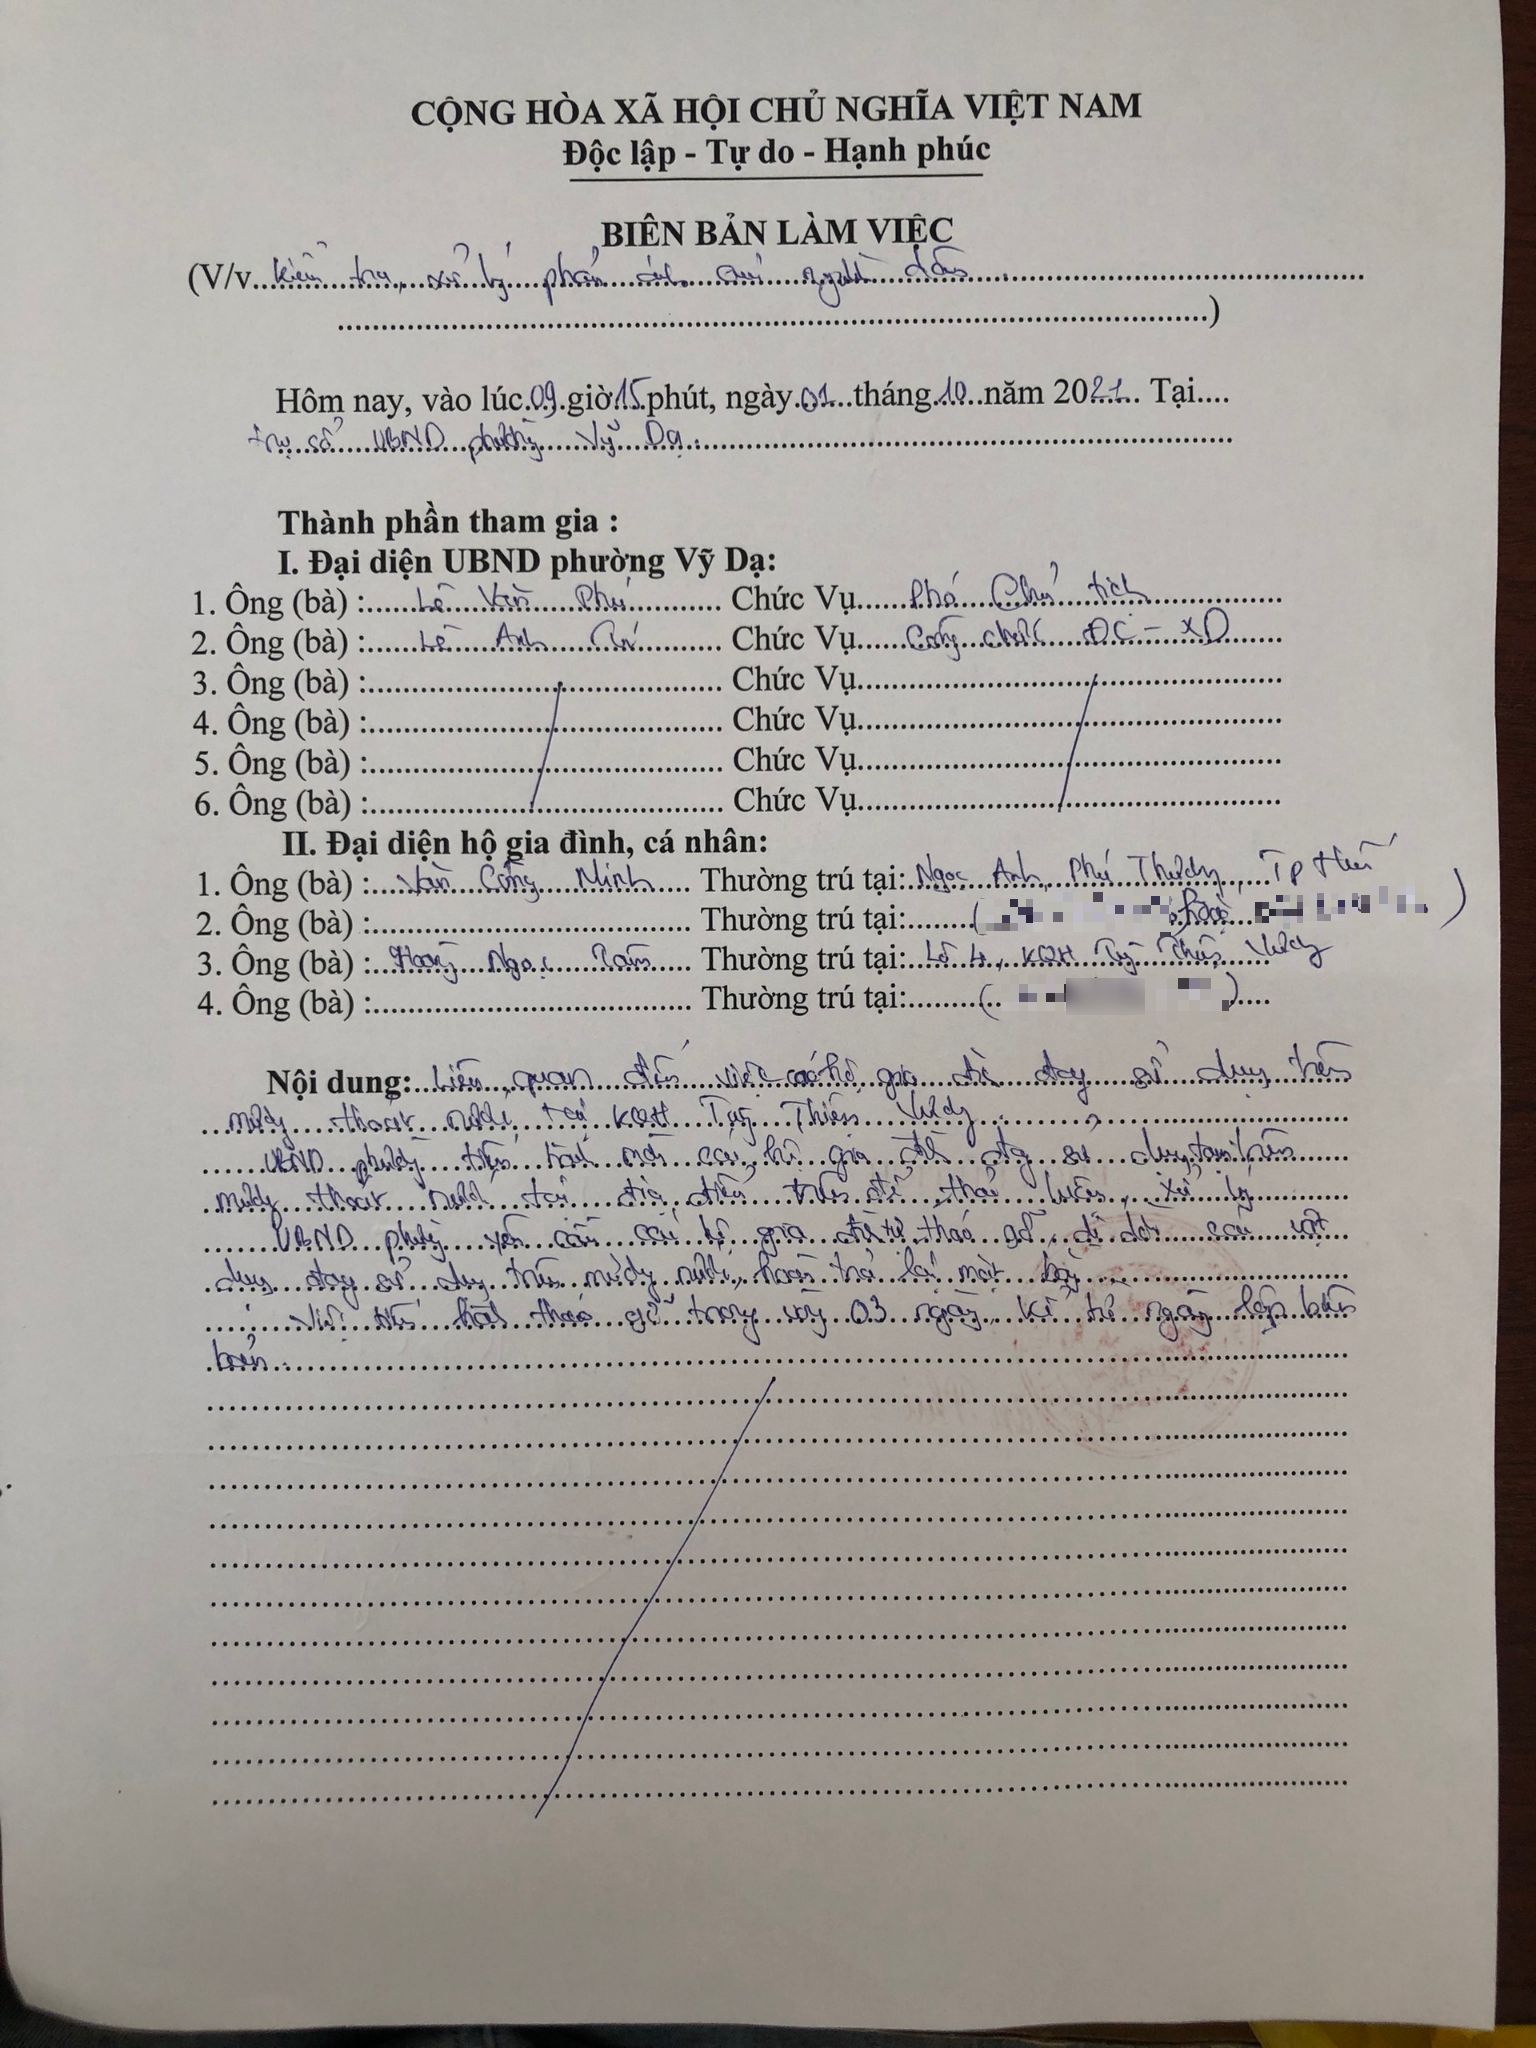 CỘNG HÒA XÃ HỘI CHỦ NGHĨA VIỆT NAM
Độc lập - Tự do - Hạnh phúc
BIÊN BẢN LÀM VIỆC
(V/v kiểm tra, xử lý phản ánh của người dân
)
Hôm nay, vào lúc 09 giờ 15 phút, ngày 01 tháng 10 năm 2021 Tại
trụ sở UBND phường Vỹ Dạ.
Thành phần tham gia :
I. Đại diện UBND phường Vỹ Dạ:
1. Ông (bà) : Lê Văn Phú Chức Vụ Phó Chủ tịch
2. Ông (bà) : Lê Anh Chức Vụ Công chức ĐC - XD
3. Ông (bà) : Chức Vụ
4. Ông (bà) : Chức Vụ
5. Ông (bà) : Chức Vụ
6. Ông (bà) : Chức Vụ
II. Đại diện hộ gia đình, cá nhân:
1. Ông (bà) : Văn Công Minh Thường trú tại: Ngọc Anh, Phú Thượng, Tp Huế
2. Ông (bà) : Thường trú tại: ( )
3. Ông (bà) : Hoàng Ngọc Thường trú tại: Lô 4, KQH Tùng Thiện Vương
4. Ông (bà) : Thường trú tại: ( )
Nội dung: Liên quan đến việc các hộ gia đình đang sử dụng trên
mương thoát nước tại KQH Tùng Thiện Vương
UBND phường tiến hành mời các hộ gia đình đang sử dụng tạm trên
mương thoát nước tại địa điểm trên để thảo luận, xử lý
UBND phường yêu cầu các hộ gia đình tự tháo gỡ, di dời các vật
dụng đang sử dụng trên mương nước, hoàn trả lại mặt bằng.
Việc tiến hành tháo gỡ trong vòng 03 ngày, kể từ ngày lập biên
bản.